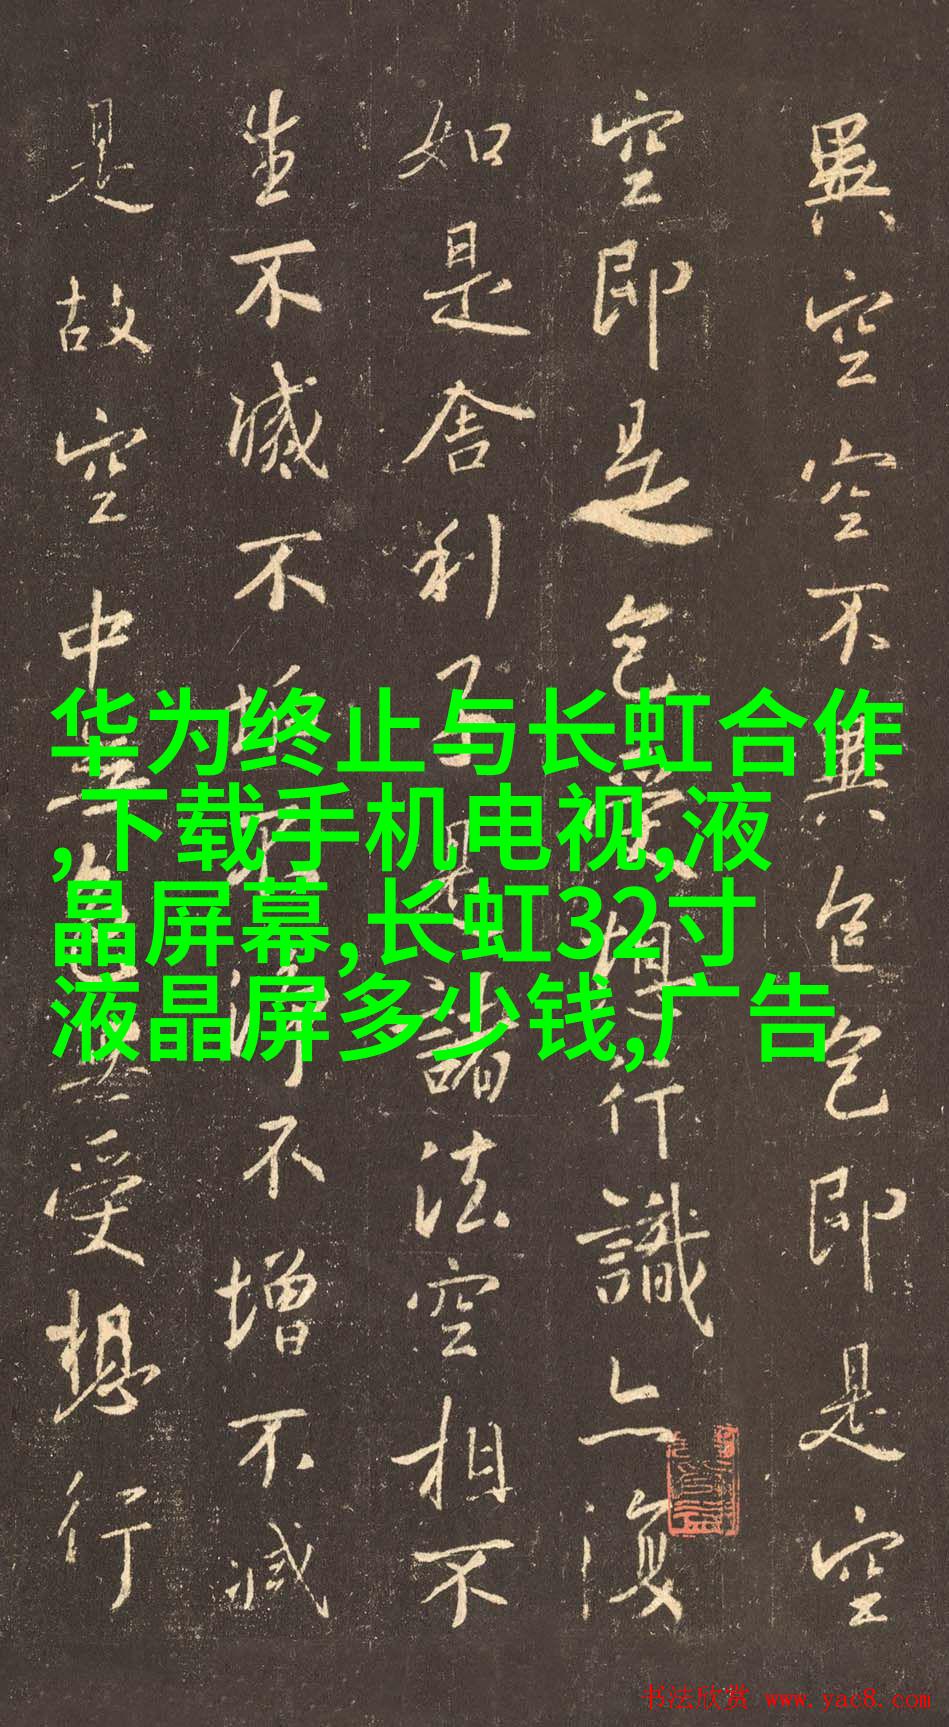 異空空不異色色即是空
空即是色受想行識亦復
如是舍利子是諸法空相不
生不滅不垢不淨不增不減
是故空中無色無受想行
华为终止与长虹合作
,下载手机电视,液
晶屏幕,长虹32寸
液晶屏多少钱,广告
书法欣赏 www.yac8.com